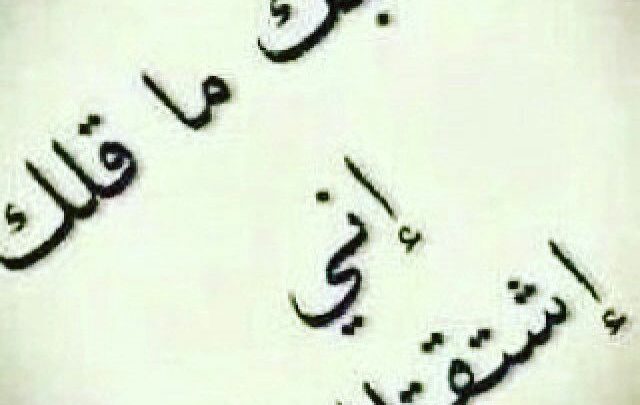 ما قلك
إني
إشتقتل